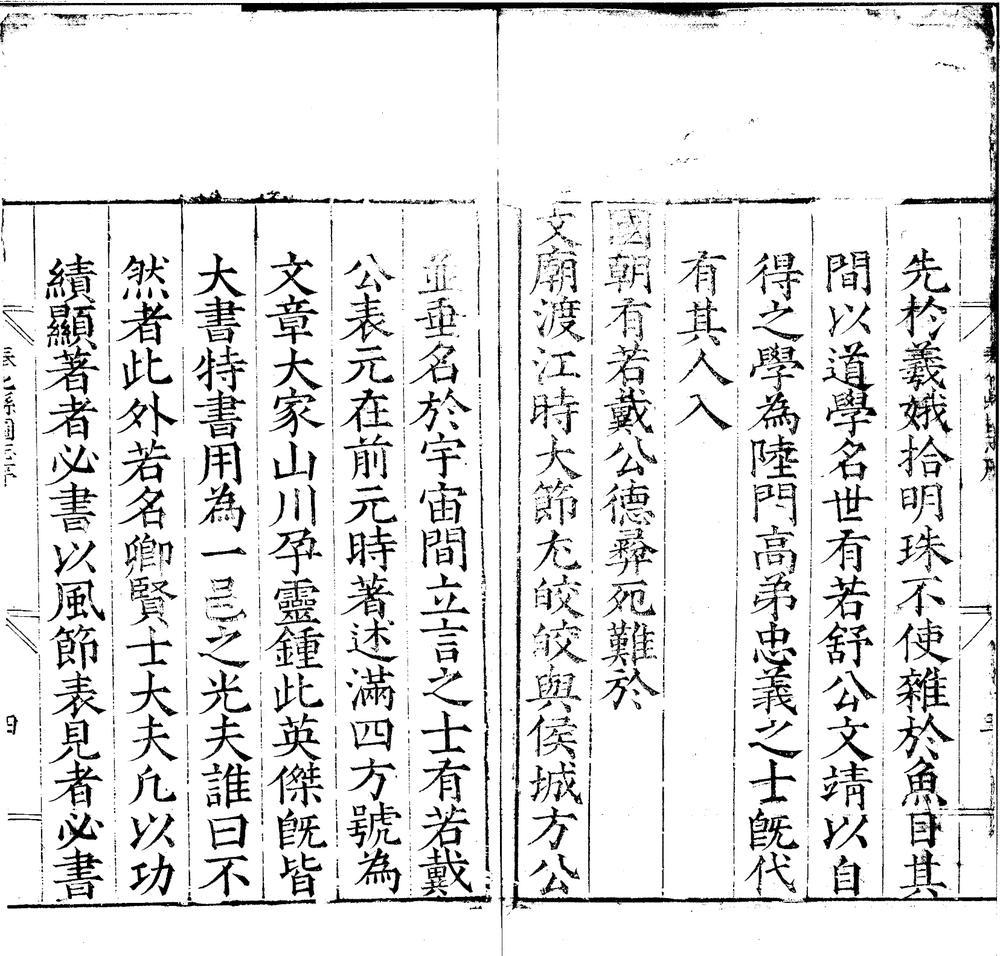 先於羲娥拾明珠不使雜於魚目其
間以道學名世有若舒公文靖以自
得之學為陸門高弟忠義之士旣代
有其人入
國朝有若戴公德彞死難於
文廟渡江時大節尢皎皎與侯城方公
並垂名於宇宙間立言之士有若戴
公表元在前元時著述滿四方號為
文章大家山川孕靈鍾此英傑旣皆
大書特書用為一邑之光夫誰曰不
然者此外若名卿賢士大夫凢以功
績顯著者必書以風節表見者必書
奉化縣圖志序
四